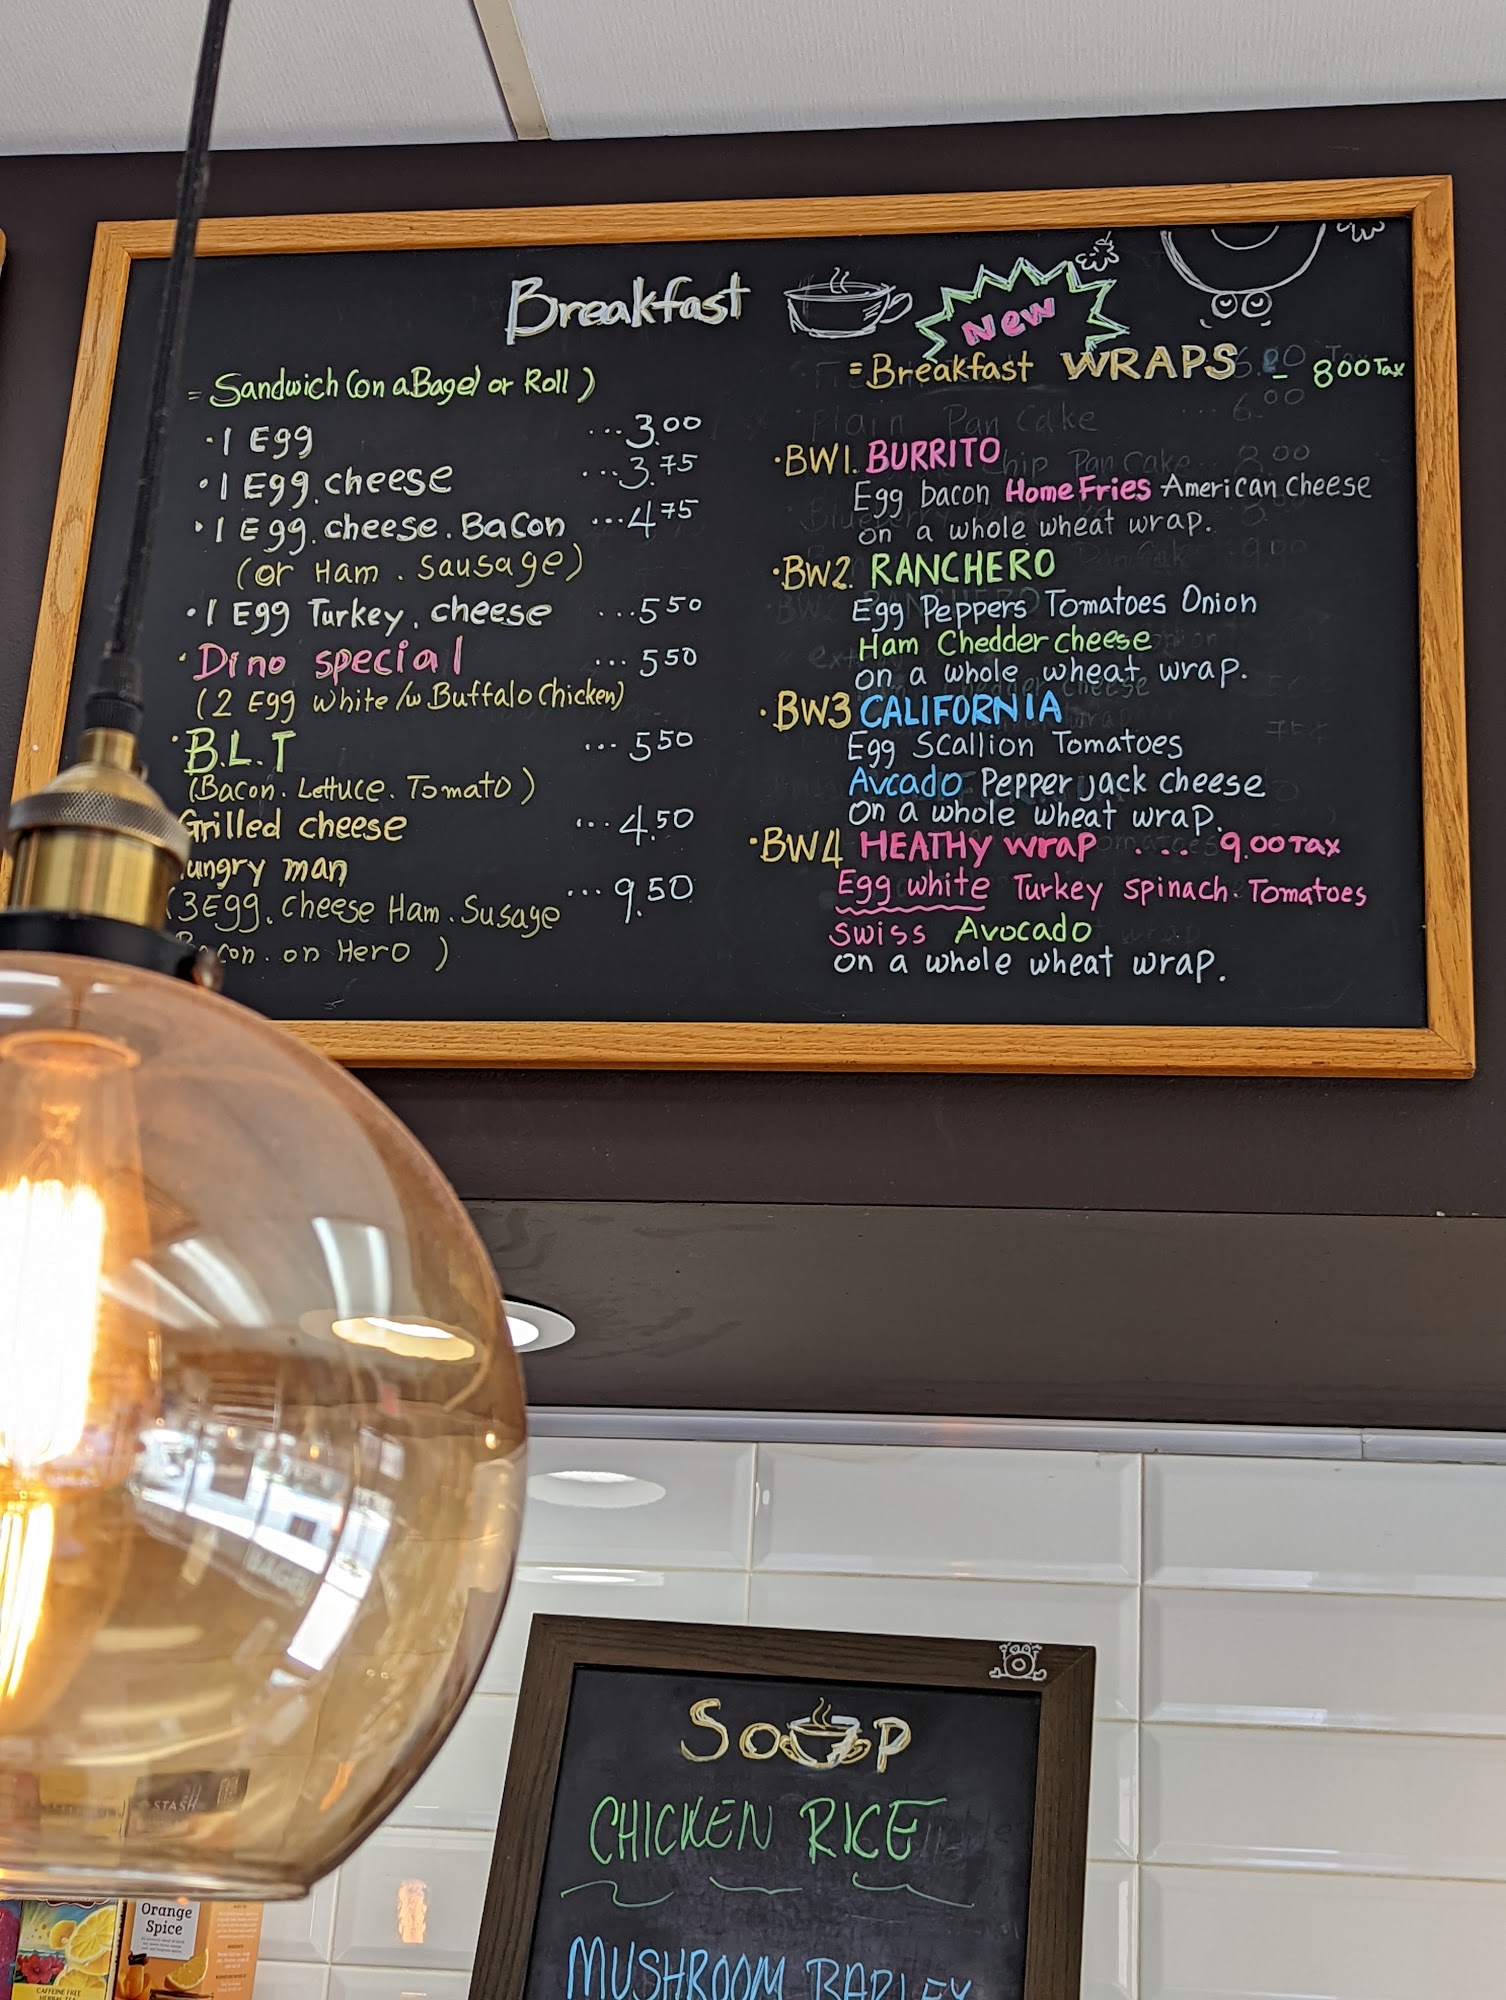 Breakfast
New
= Sandwich (on a Bagel or Roll)
· 1 Egg ...3.00
· 1 Egg. cheese ...3.75
· 1 Egg. cheese. Bacon ...4.75
(or Ham. Sausage)
· 1 Egg Turkey. cheese ...5.50
· Dino special ...5.50
(2 Egg White /w Buffalo Chicken)
· B.L.T ...5.50
(Bacon. Lettuce. Tomato)
Grilled cheese ...4.50
ungry man
(3 Egg. cheese Ham. Susage ...9.50
acon. on Hero )
= Breakfast WRAPS - 8.00 Tax
· BW1. BURRITO
Egg bacon Home Fries American cheese
on a whole wheat wrap.
· BW2. RANCHERO
Egg Peppers Tomatoes Onion
Ham Chedder cheese
on a whole wheat wrap.
· BW3 CALIFORNIA
Egg Scallion Tomatoes
Avcado Pepper jack cheese
on a whole wheat wrap.
· BW4 HEATHy wrap .... 9.00 TAX
Egg white Turkey spinach. Tomatoes
swiss Avocado
on a whole wheat wrap.
Soup
CHICKEN RICE
MUSHROOM BARLEY
STASH
Orange
Spice
CAFFEINE FREE
HERBAL TEA